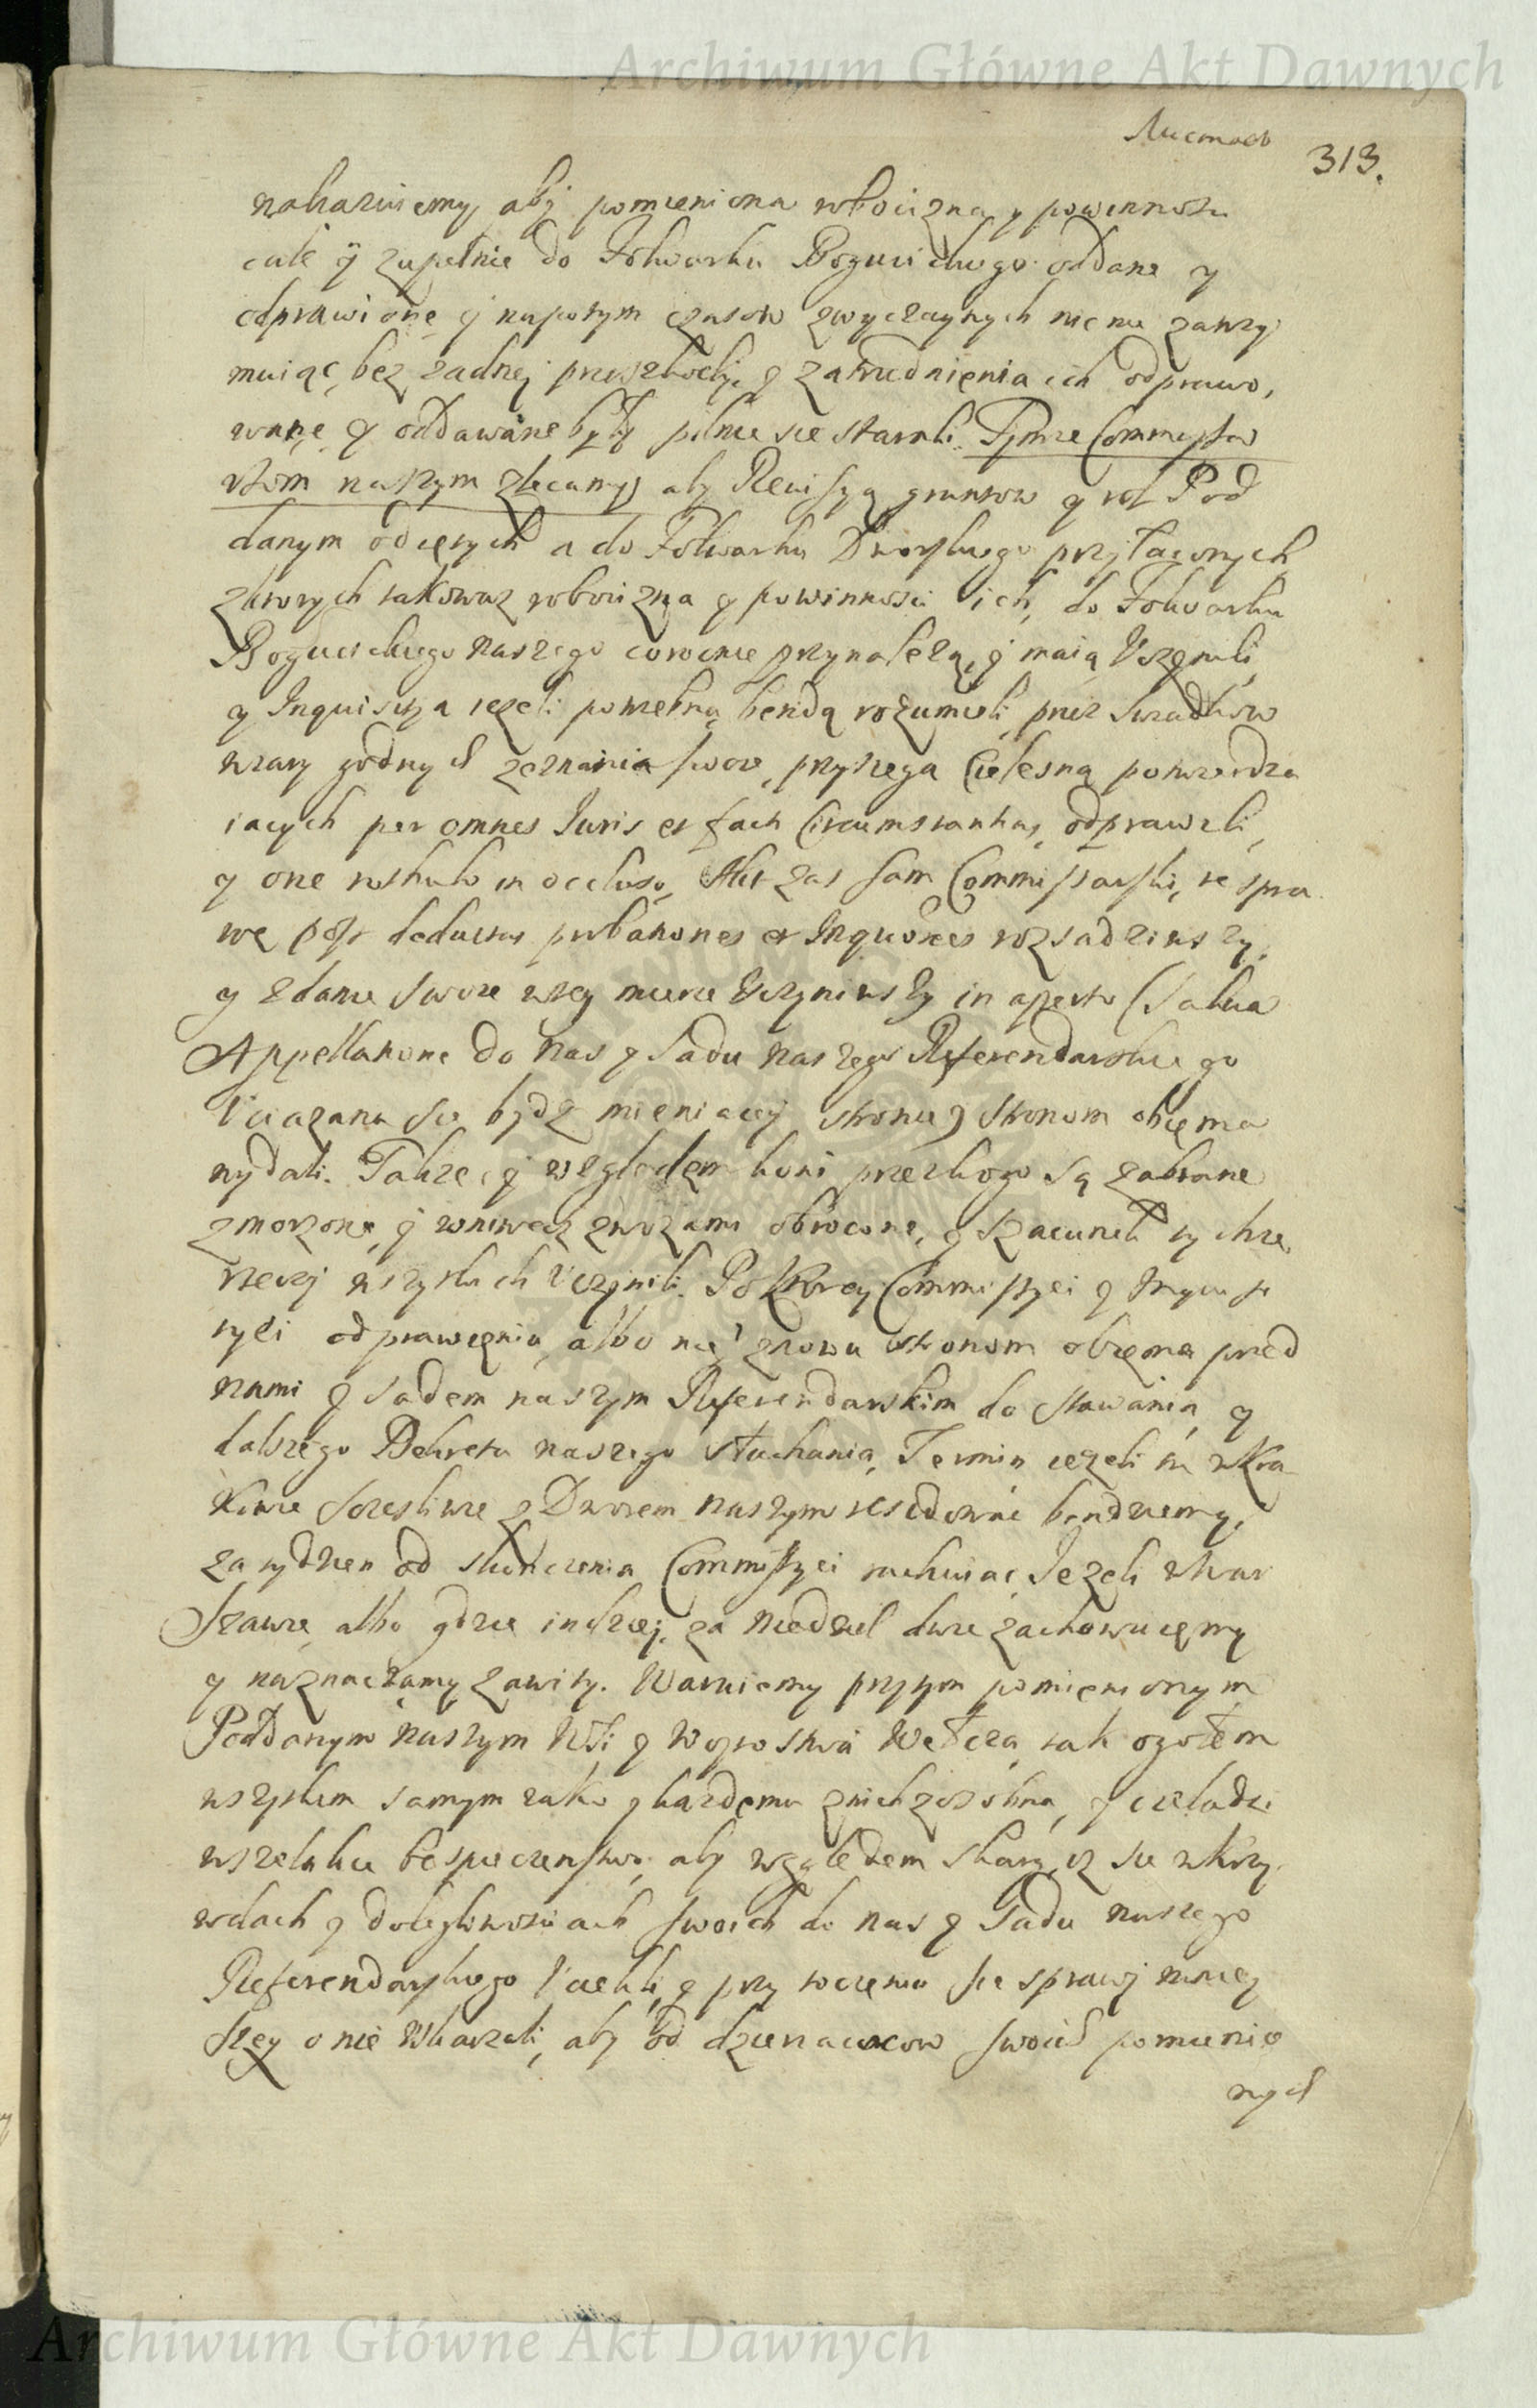 Archiwum Główne Akt Dawnych
Листовъ
313.
nakazuiemy, aby pomieniona robocizna y powinności
cale y zupełnie do Folwarku Bogucickiego oddane y
odprawione y napotym czasow zwyczaynych nic nie zatrzy
muiąc, bez żadney przeszkody, y zatrudnienia ich odprawo,
wane y oddawane były pilnie sie starali. Tymże Commissa
rzom naszym zlecamy, aby Rewisyą gruntow y rol Pod
danym odiętych a do Folwarku Dworskiego przyłączonych
z ktorych takowaz robocizna y powinności ich, do Folwarku
Bogucickiego naszego corocznie przynależą, y maią Uczynili,
y Inquisitia ieżeli potrzebną bendą rozumieli przez swiadkow
wiary godnych zeznania swoie przysięga Cielesną potwierdza
iących per omnes Iuris et facti Circumstantias, odprawili,
y one rotulo in occluso, Akt zas sam Commissarski, te spra
wę post deductas probationes et Inquones rozsadziwszy,
y zdanie swoie w tey mierze Uczyniwszy in aperto (salua
Appellatione do Nas y Sadu naszego Referendarskiego
Uciązaną sie bydz mieniącey stronie) stronom obiema
wydali. Także y względem koni przez kogo są zabrane
zmorzone, y wniwecz zwozami obrocone, y szacunek tychze
rzeczy wszystkich Uczynili. Po ktorey Commissyei y Inquisi
tyei odprawieniu, albo nie znowu stronom obiema przed
nami y sadem naszym Referendarskim do stawania y
dalszego Dekretu naszego słuchania, Termin ieżeli sie w Kra
kowie szczesliwie z Dworem naszym residowac bendziemy,
za tydzien od skończenia Commissyei rachuiąc, Jeżeli w War
szawie, albo gdzie indziey, za niedziel dwie zachowuiemy
y naznaczamy zawity. Waruiemy przytym pomienionym
Poddanym naszym Wsi y Woytostwa Wełcza tak ogołem
wszystkim samym iako y kazdemu z nich z osobna, y czeladzi
wszelakie bespieczenstwo, aby względem skarg, iz sie w krzy,
wdach y dolegliwosciach swoich do nas y Sadu naszego
Referendarskiego Uciekli, y przy toczeniu sie sprawy ninieỵ
szey o nie Ukarzali, aby od dzierzawcow swoich pomienio
nych
Archiwum Główne Akt Dawnych